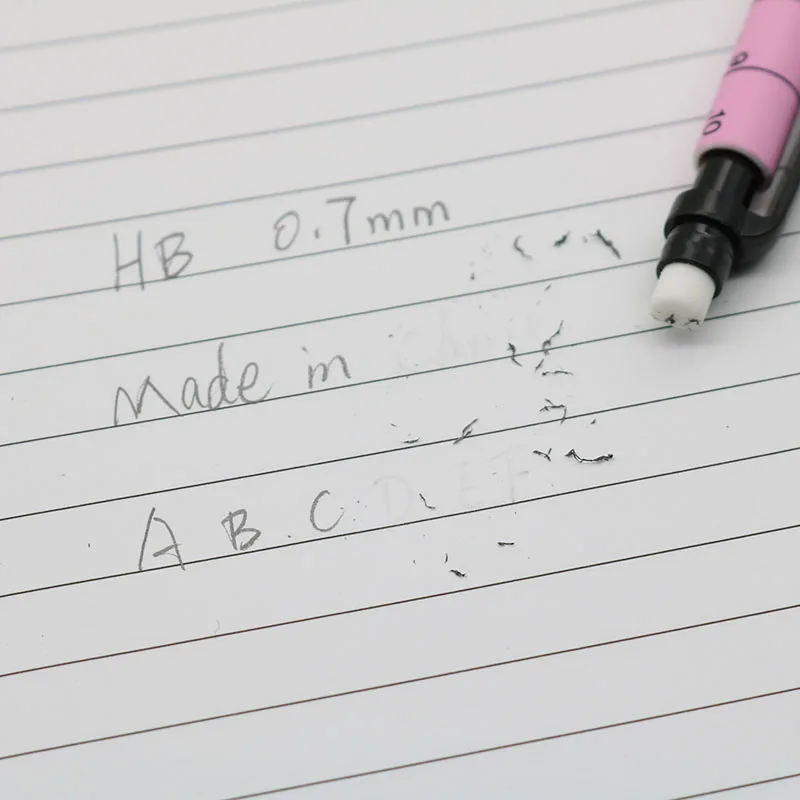 HB 0.7mm
Made in
A B C D E F
9
10